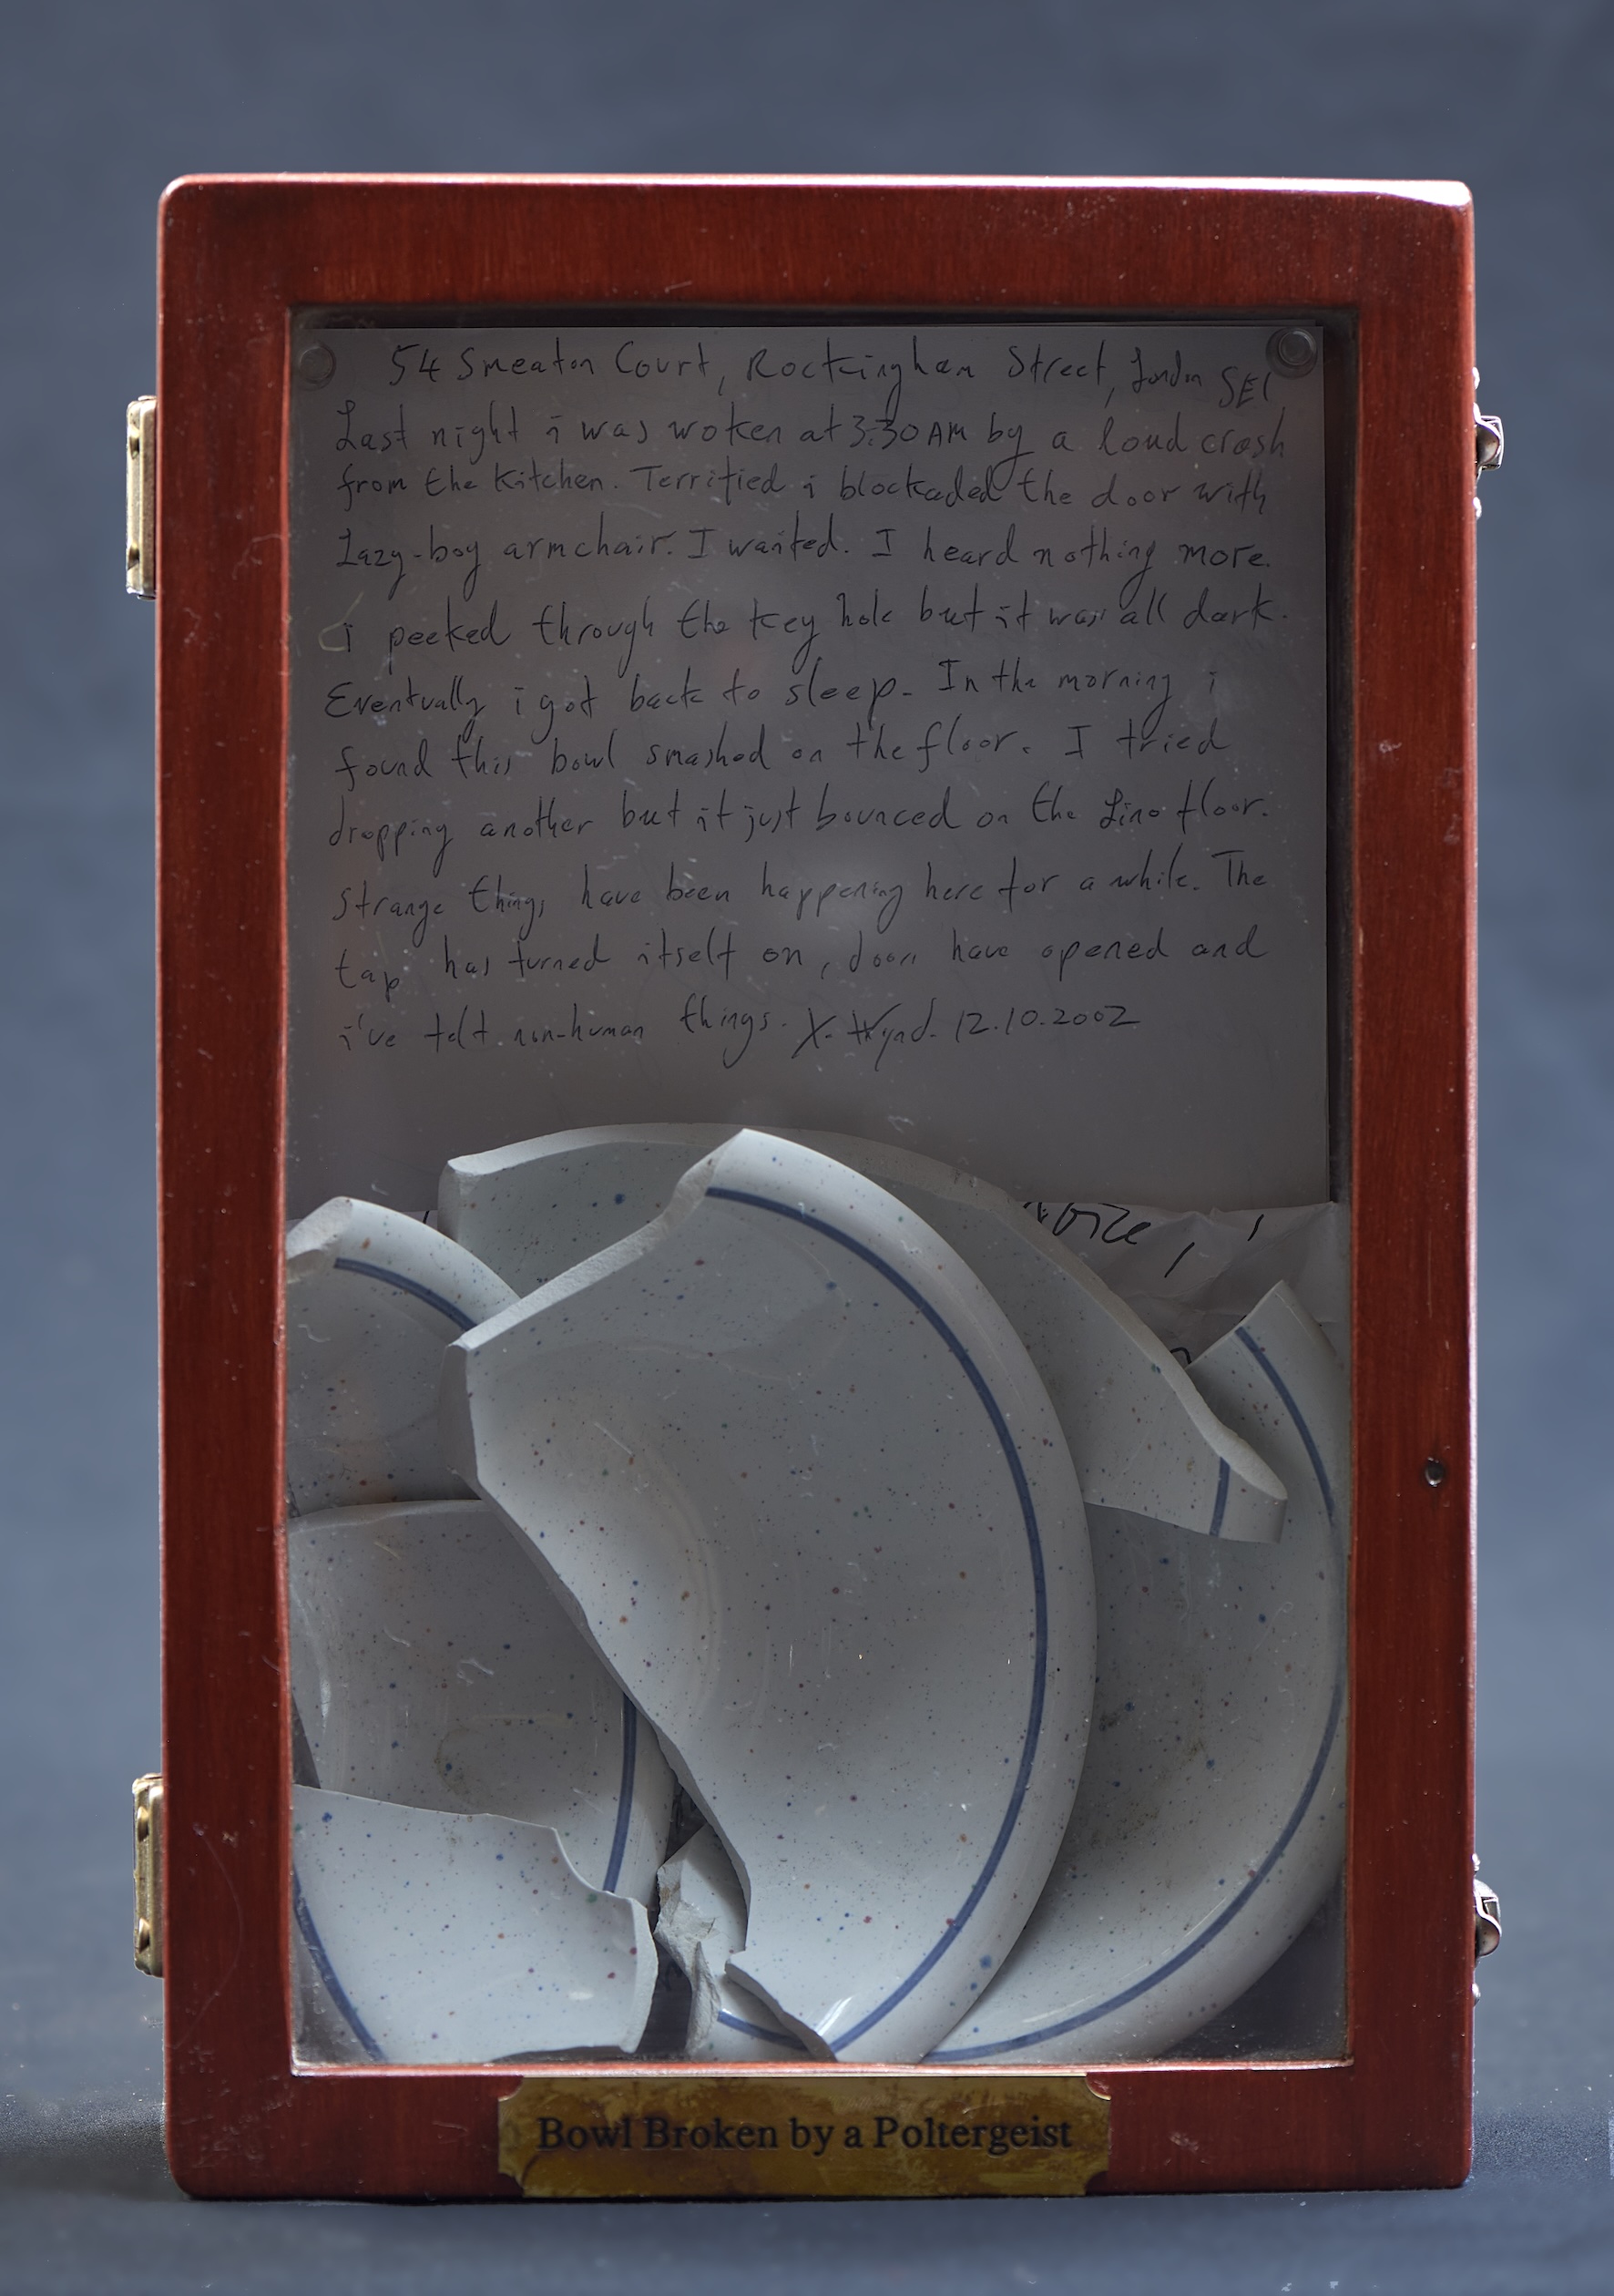 54 Smeaton Court, Rockingham Street, London SE1
Last night i was woken at 3:30 AM by a loud crash
from the kitchen. Terrified i blockaded the door with
Lazy-boy armchair. I waited. I heard nothing more.
i peeked through the key hole but it was all dark.
Eventually i got back to sleep. In the morning i
found this bowl smashed on the floor. I tried
dropping another but it just bounced on the Lino floor.
Strange things have been happening here for a while. The
tap has turned itself on, doors have opened and
i've felt non-human things. X. Wynd. 12.10.2002
Bowl Broken by a Poltergeist